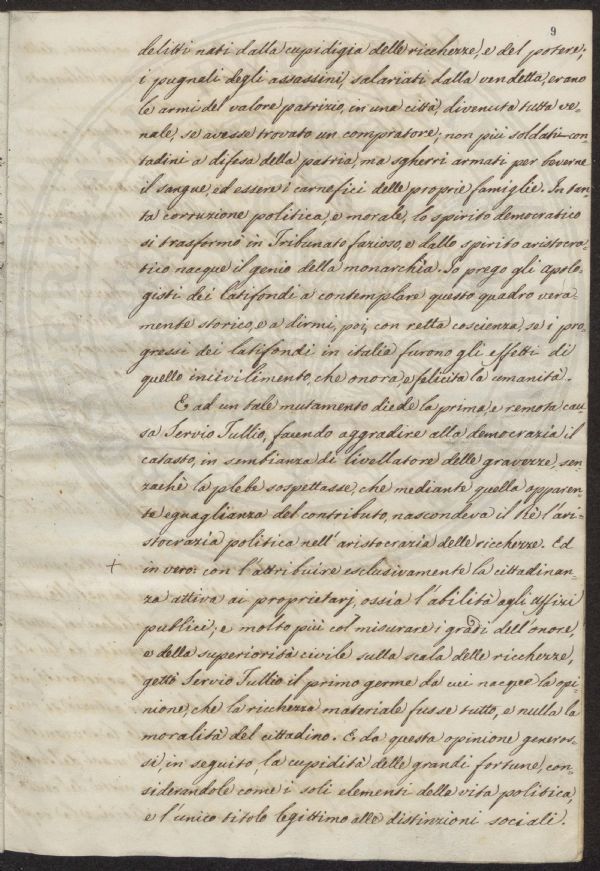 9
delitti nati dalla cupidigia delle ricchezze, e del potere;
i pugnali degli assassini, salariati dalla vendetta, erano
le armi del valore patrizio, in una città, divenuta tutta ve-
nale, se avesse trovato un compratore; non più soldati con-
tadini a difesa della patria, ma sgherri armati per beverne
il sangue, ed essere i carnefici delle proprie famiglie. In tan-
ta corruzione politica, e morale, lo spirito democratico
si trasformò in Tribunato fazioso, e dallo spirito aristocra-
tico nacque il genio della monarchia. Io prego gli apolo-
gisti dei latifondi a contemplare questo quadro vera-
mente storico, e a dirmi, poi, con retta coscienza, se i pro-
gressi dei latifondi in italia furono gli effetti di
quello incivilimento, che onora, e felicita la umanità.
E ad un tale mutamento diede la prima, e remota cau-
sa Servio Tullio, facendo aggradire alla democrazia il
catasto, in sembianza di livellatore delle gravezze, sen-
zachè la plebe sospettasse, che mediante quella apparen-
te eguaglianza del contributo, nascondeva il Rè l'ari-
stocrazia politica nell'aristocrazia delle ricchezze. Ed
+ in vero: con l'attribuire esclusivamente la cittadinan-
za attiva ai proprietarj, ossia l'abilità agli Uffizi
publici; e molto più col misurare i gradi dell'onore,
e della superiorità civile sulla scala delle ricchezze,
gettò Servio Tullio il primo germe da cui nacque la opi-
nione, che la ricchezza materiale fusse tutto, e nulla la
moralità del cittadino. E da questa opinione generos-
si, in seguito, la cupidità delle grandi fortune, con-
siderandole come i soli elementi della vita politica,
e l'unico titolo legittimo alle distinzioni sociali.